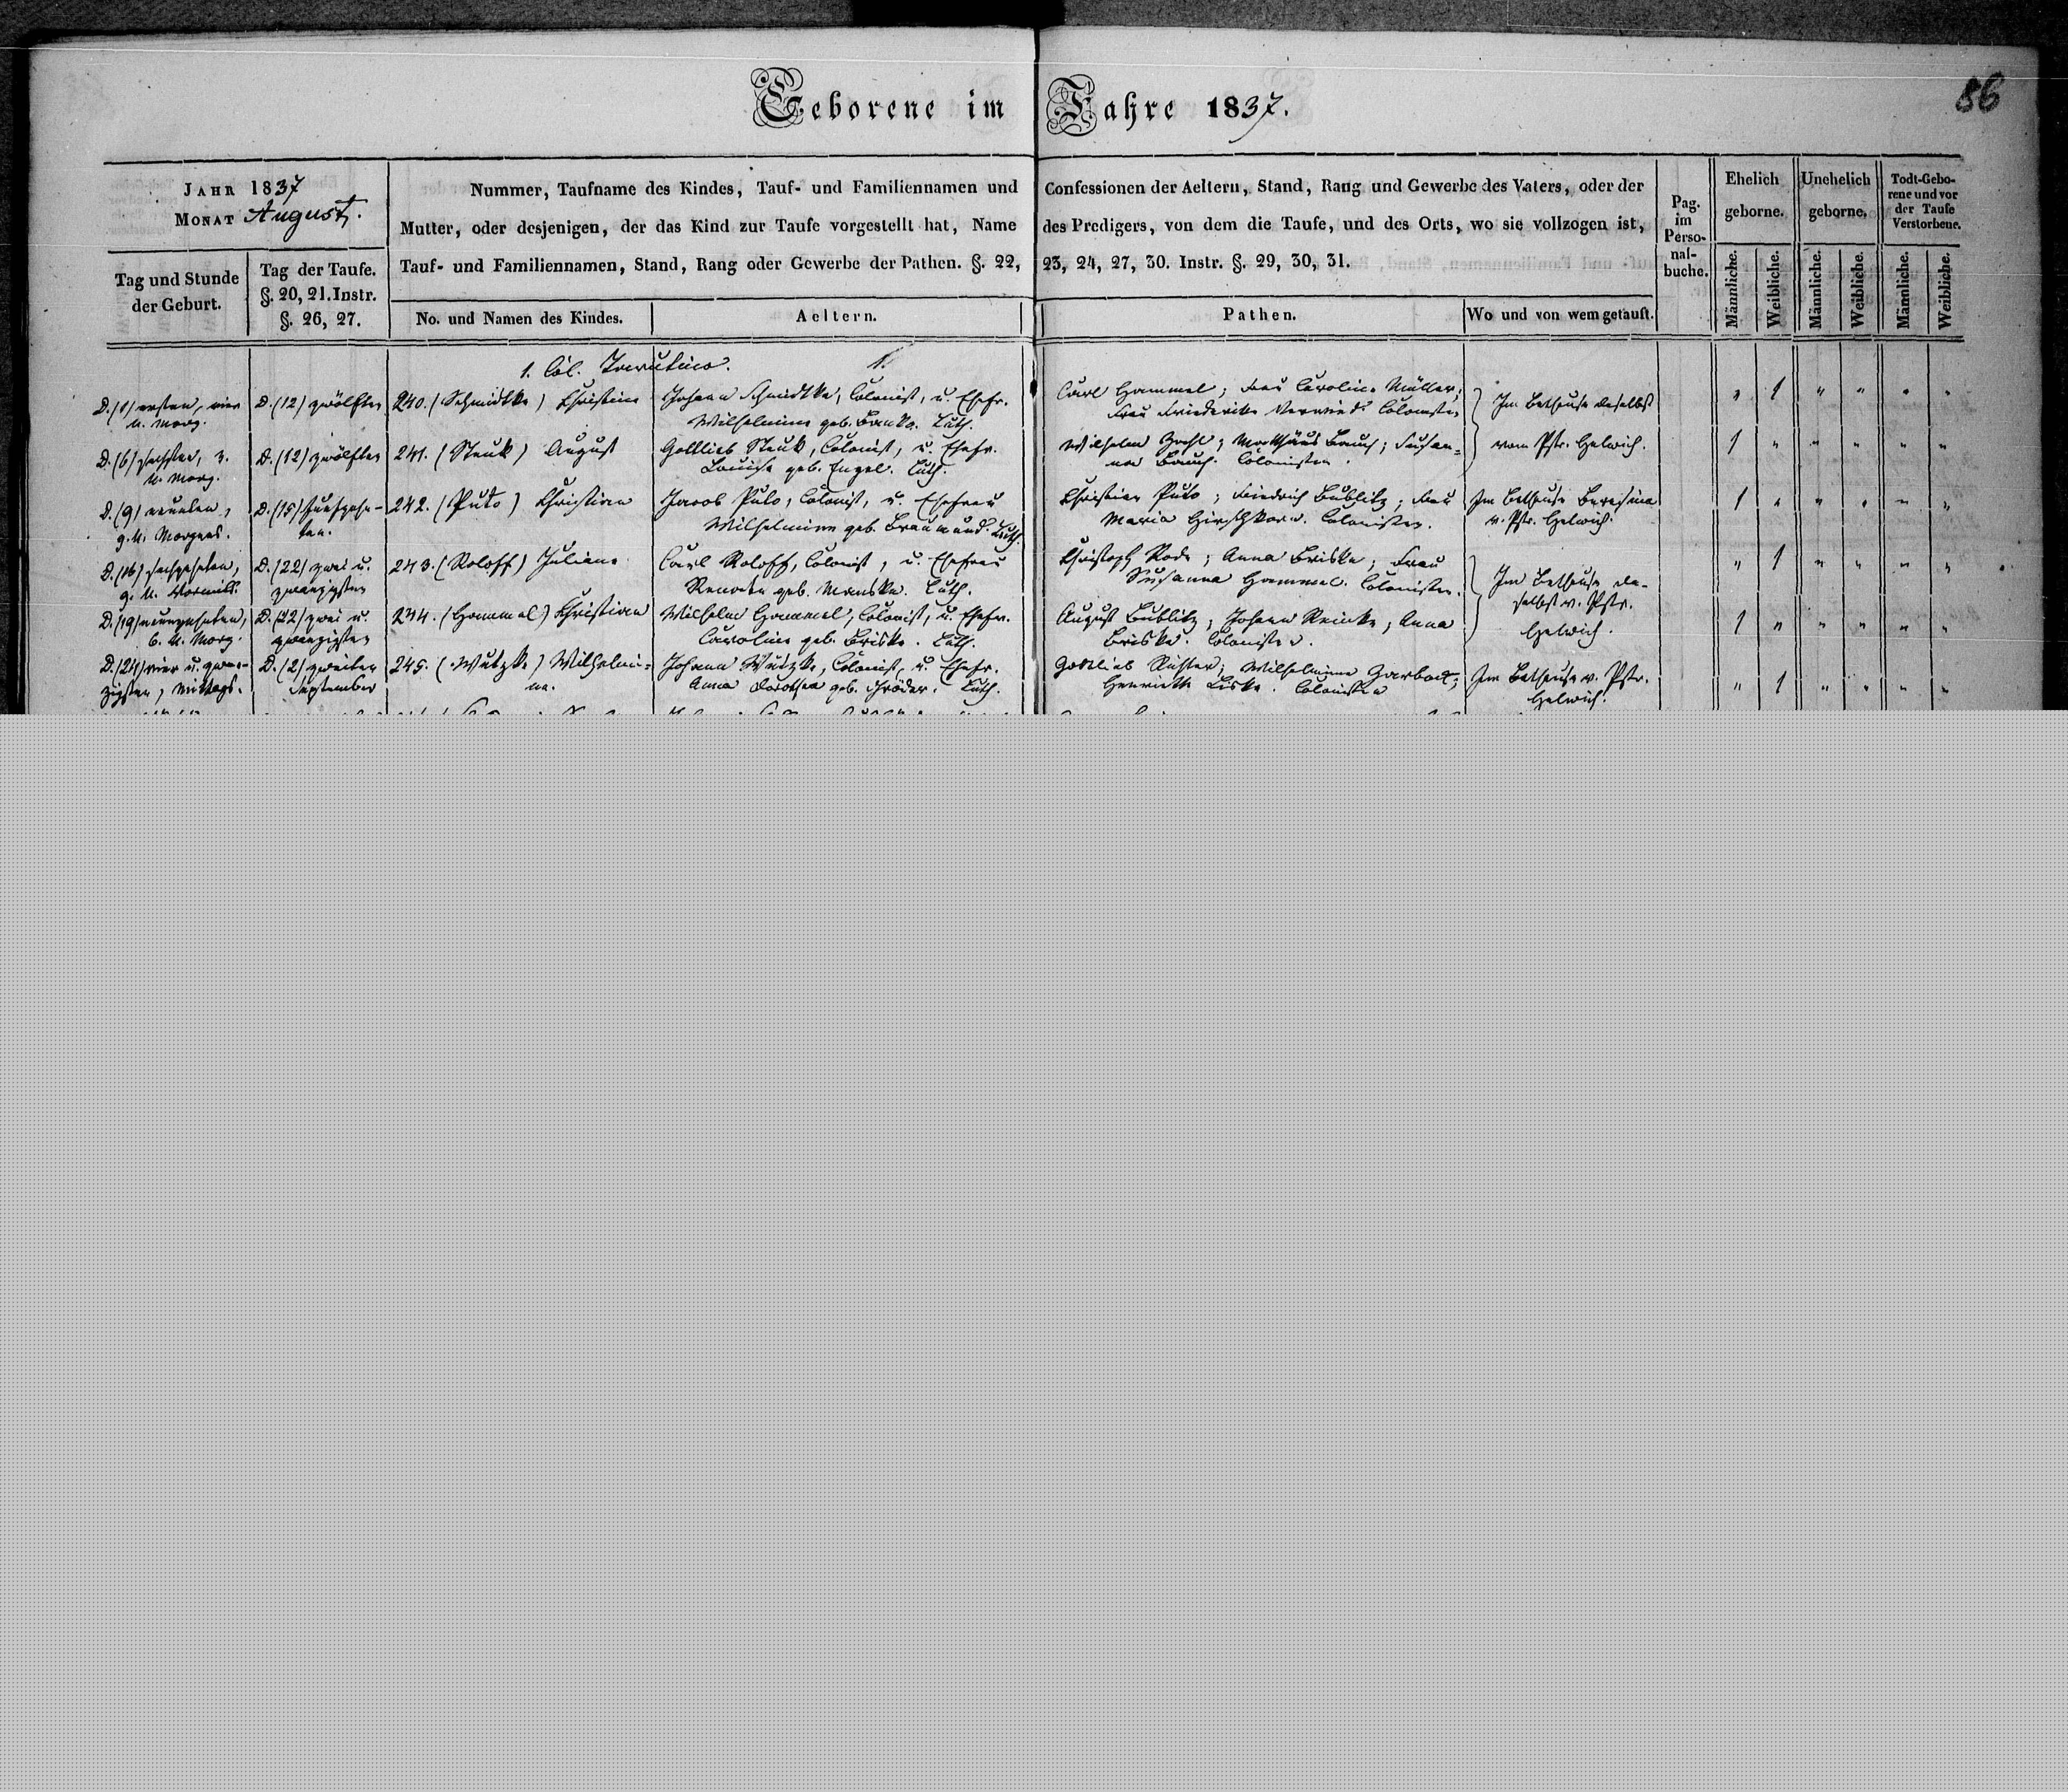 86
Geborene im Jahre 1837.
JAHR 1837
MONAT August.
Tag und Stunde
der Geburt.
Tag der Taufe.
§. 20, 21. Instr.
§. 26, 27.
Nummer, Taufname des Kindes, Tauf- und Familiennamen und Confessionen der Aeltern, Stand, Rang und Gewerbe des Vaters, oder der
Mutter, oder desjenigen, der das Kind zur Taufe vorgestellt hat, Name des Predigers, von dem die Taufe, und des Orts, wo sie vollzogen ist,
Tauf- und Familiennamen, Stand, Rang oder Gewerbe der Pathen. §. 22, 23, 24, 27, 30. Instr. §. 29, 30, 31.
No. und Namen des Kindes.
Aeltern.
Pathen.
Wo und von wem getauft.
Pag.
im
Perso-
nal-
buche.
Ehelich
geborne.
Unehelich
geborne.
Todt-Gebo-
rene und vor
der Taufe
Verstorbene.
Männliche. Weibliche. Männliche. Weibliche. Männliche. Weibliche.
1. Col. Tarutino. 1.
D. (1) ersten, vier
U. Morg.
D. (12) zwölften
240. (Schmidtke) Christine
Johann Schmidtke, Colonist, u. Ehefr.
Wilhelmine geb. Luth.
Carl Hammel; Frau Caroline Müller;
Frau Friederike Colonisten
Im Bethause daselbst
" 1 " " " "
D. (6) sechsten, 3.
U. Morg.
D. (12) zwölften
241. (Steuk) August
Gottlieb Steuk, Colonist, u. Ehefr.
Louise geb. Engel. Luth.
Wilhelm Matthäus Bauch; Susan-
na Bauch. Colonisten.
vom Pstr. Helwich.
1 " " " " "
D. (9) neunten,
9. U. Morgens.
D. (15) funfzehn-
ten.
242. (Puto) Christian
Jacob Puto, Colonist, u. Ehefrau
Wilhelmine geb. Braumund. Luth.
Christian Puto; Friedrich Bublitz; Frau
Maria Hirschkorn. Colonisten.
Im Bethause Beresina
v. Pstr. Helwich.
1 " " " " "
D. (16) sechszehnten,
9. U. Vormitt.
D. (22) zwei u.
zwanzigsten
243. (Roloff) Juliane
Carl Roloff, Colonist, u. Ehefrau
Renate geb. Manske. Luth.
Christoph Rode; Anna Briske; Frau
Susanna Hammel. Colonisten.
Im Bethause da-
selbst v. Pstr.
Helwich.
" 1 " " " "
D. (19) neunzehnten,
6. U. Morg.
D. (22) zwei u.
zwanzigsten
244. (Hammel) Christian
Wilhelm Hammel, Colonist, u. Ehefr.
Caroline geb. Briske. Luth.
August Bublitz; Johann Reinke; Anna
Briske. Colonisten.
1 " " " " "
D. (24) vier u. zwan-
zigsten, Mittags.
D. (2) zweiten
September
245. (Wutzke) Wilhelmi-
ne.
Johann Wutzke, Colonist, u. Ehefr.
Anna Dorothea geb. Schröder. Luth.
Gottlieb Rüster; Wilhelmine Garback;
Henriette Liske. Colonisten
Im Bethause v. Pstr.
Helwich.
" 1 " " " "